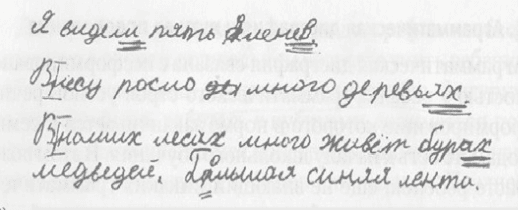 Я видели пять оленев.
В лесу росло много деревьях.
В наших лесах много живёт бурах
медведей. Большая синяя лента.